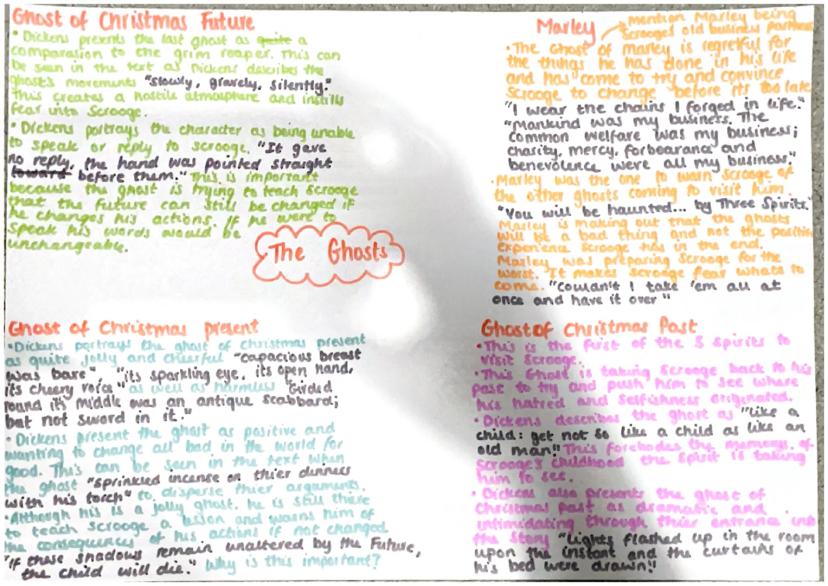 Ghost of Christmas Future
• Dickens presents the last ghost as quite a
comparasion to the grim reaper. This can
be seen in the text as Dickens describes the
ghost's movements "slowly, gravely, silently."
This creates a hostile atmosphere and instills
fear into Scrooge.
• Dickens portrays the character as being unable
to speak or reply to scrooge. "It gave
no reply, the hand was pointed straight
toward before them." This is important
because the ghost is trying to teach scrooge
that the future can still be changed if
he changes his actions. If he were to
speak his words would be
unchangeable.
The Ghosts
Marley
mention Marley being
Scrooges old business partners
• The Ghost of marley is regretful for
the things he has done in his life
and has come to try and convince
Scrooge to change before its too late.
"I wear the chains I forged in life."
"Mankind was my business. The
common welfare was my business;
charity, mercy, forbearance and
benevolence were all my business."
• Marley was the one to warn Scrooge of
the other ghosts coming to visit him.
"You will be haunted... by Three Spirits."
Marley is making out that the ghosts
will be a bad thing and not the positive
experience Scrooge has in the end.
Marley was preparing Scrooge for the
worst. It makes scrooge fear whats to
come. "Couldn't I take 'em all at
once and have it over"
Ghost of Christmas present
• Dickens portrays the ghost of christmas present
as quite jolly and cheerful "capacious breast
was bare", "its sparkling eye, its open hand,
its cheery voice" as well as harmless "Girded
round its middle was an antique scabbard;
but not sword in it."
• Dickens present the ghost as positive and
wanting to change all bad in the world for
good. This can be seen in the text when
the ghost "sprinkled incense on thier dinners
with his torch" to disperse thier arguments.
• Although his is a jolly ghost, he is still there
to teach scrooge a lesson and warns him of
the consequences of his actions if not changed.
"if these shadows remain unaltered by the Future,
the child will die." Why is this important?
Ghost of Christmas Past
• This is the first of the 3 Spirits to
visit Scrooge.
• This Ghost is taking Scrooge back to his
past to try and push him to see where
his hatred and selfishness originated.
• Dickens describes the ghost as "like a
child: yet not so like a child as like an
old man" This forebodes the memories of
Scrooge's childhood the spirit is taking
him to see.
• Dickens also presents the ghost of
Christmas past as dramatic and
intimidating through thier entrance into
the story "Lights flashed up in the room
upon the instant and the curtains of
his bed were drawn."